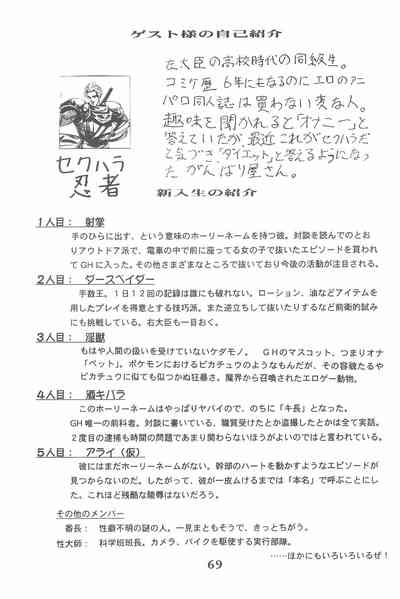 ゲスト様の自己紹介
左大臣の高校時代の同級生。
コミケ歴6年にもなるのにエロのアニ
パロ同人誌は買わない変な人。
趣味を聞かれると「オナニー」と
答えていたが、最近これがセクハラだ
と気づき「ダイエット」と答えるようになっ
たがんばり屋さん。
セクハラ
忍者
新入生の紹介
1人目： 射掌
手のひらに出す、という意味のホーリーネームを持つ彼。対談を読んでのとお
りアウトドア派で、電車の中で前に座ってる女の子で抜いたエピソードを買われ
てGHに入った。その他さまざまなところで抜いており今後の活動が注目される。
2人目： ダースペイダー
手数王。1日12回の記録は誰にも破れない。ローション、油などアイテムを
用したプレイを得意とする技巧派。また逆立ちして抜いたりするなど前衛的試み
にも挑戦している。右大臣も一目おく。
3人目： 淫獣
もはや人間の扱いを受けていないケダモノ。 GHのマスコット、つまりオナ
「ペット」。ポケモンにおけるピカチュウのようなもんだが、その容貌たるや
ピカチュウに似ても似つかぬ狂暴さ。魔界から召喚されたエロゲー動物。
4人目： 酒キバラ
このホーリーネームはやっぱりヤバイので、のちに「キ長」となった。
GH唯一の前科者。対談に書いている、職質受けたとか盗撮したとかは全て実話。
2度目の逮捕も時間の問題であまり関わらないほうがよいのではと言われている。
5人目： アライ（仮）
彼にはまだホーリーネームがない。幹部のハートを動かすようなエピソードが
見つからないのだ。したがって、彼が一皮ムけるまでは「本名」で呼ぶことにし
た、これほど残酷な陵辱はないだろう。
その他のメンバー
番長： 性癖不明の謎の人。一見まともそうで、きっとちがう。
性大師： 科学班班長。カメラ、バイクを駆使する実行部隊。
……ほかにもいろいろいるぜ！
69